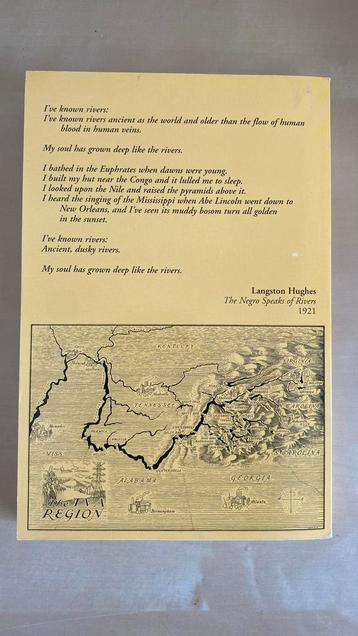 I've known rivers:
I've known rivers ancient as the world and older than the flow of human
blood in human veins.
My soul has grown deep like the rivers.
I bathed in the Euphrates when dawns were young.
I built my hut near the Congo and it lulled me to sleep.
I looked upon the Nile and raised the pyramids above it.
I heard the singing of the Mississippi when Abe Lincoln went down to
New Orleans, and I've seen its muddy bosom turn all golden
in the sunset.
I've known rivers:
Ancient, dusky rivers.
My soul has grown deep like the rivers.
Langston Hughes
The Negro Speaks of Rivers
1921
KENTUCKY
VIRGINIA
TENNESSEE
CAROLINA
MISS
ALABAMA
GEORGIA
S. CAROLINA
Birmingham
Atlanta
The TVA
REGION